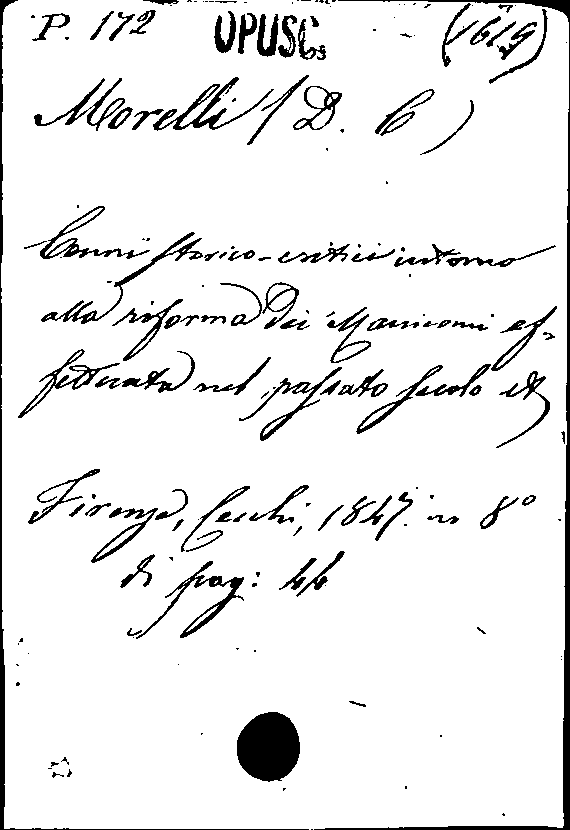 P. 172 OPUSC. (1619)
Morelli (D. C)
Cenni storico-critici intorno
alla riforma dei Manicomi ef-
fettuata nel passato secolo et
Firenze, Cecchi, 1847. in 8º
di pag: 44